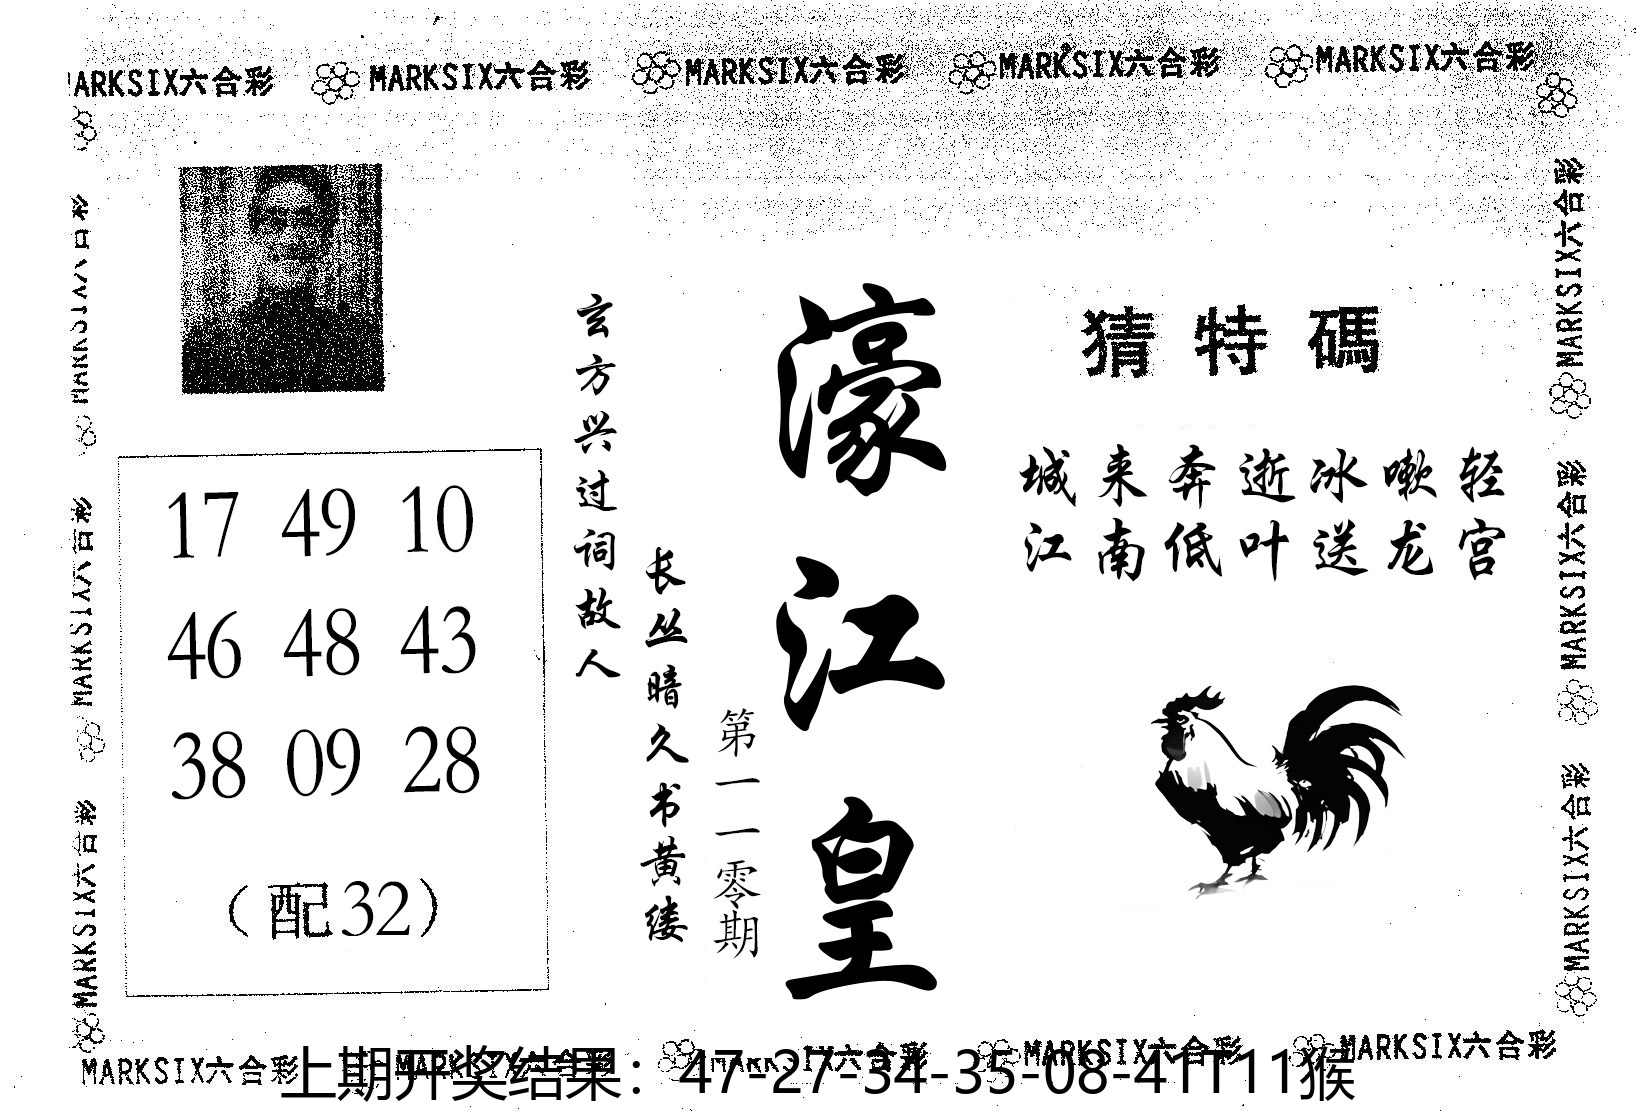 MARKSIX六合彩 MARKSIX六合彩 MARKSIX六合彩 MARKSIX六合彩 MARKSIX六合彩
猜特碼
城来奔逝冰嗽轻
江南低叶送龙宫
濠江皇
第一一零期
长丛暗久书黄缕
玄方兴过词故人
17 49 10
46 48 43
38 09 28
（配32）
MARKSIX六合彩
MARKSIX六合彩
MARKSIX六合彩
MARKSIX六合彩
MARKSIX六合彩
MARKSIX六合彩
MARKSIX六合彩 MARKSIX六合彩 MARKSIX六合彩 MARKSIX六合彩 MARKSIX六合彩
上期开奖结果：47-27-34-35-08-41T11猴